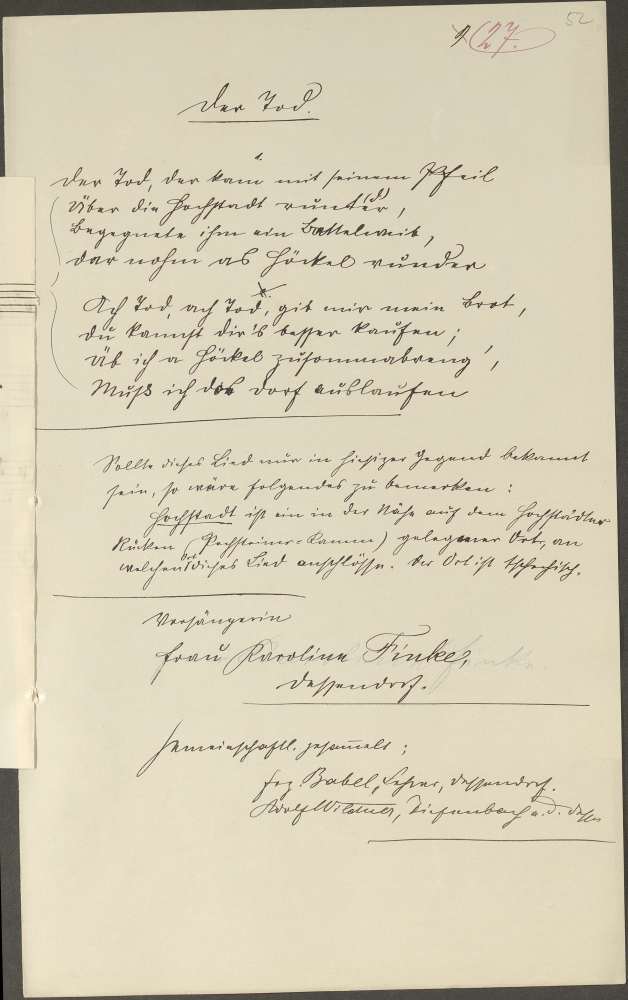 52
9 (27.)
Der Tod.
1.
Der Tod, der kam mit seinem Pfeil
Über die Hochstadt runter (d),
Begegnete ihm ein Bettelweib,
Dar nohm as Höckel runder
2.
Ach Tod, ach Tod, gib mir mein Brot,
Du kannst dir's besser kaufen;
Üb ich a Höckel zusommabreng',
Muß ich dos Dorf auslaufen
Sollte dieses Lied nur in hiesiger Gegend bekannt
sein, so wäre folgendes zu bemerken:
Hochstadt ist ein in der Nähe auf dem Hochstädter
Rücken (Pechsteiner-Kamm) gelegener Ort, an
welchen Ort dieses Lied anschlösse. Der Ort ist tschechisch.
Vorsängerin
Frau Karoline Finke,
Dessendorf.
Gemeinschaftl. gesammelt:
Frz. Babel, Lehrer, Dessendorf.
Adolf Wildner, Tiefenbach a. d. Desse